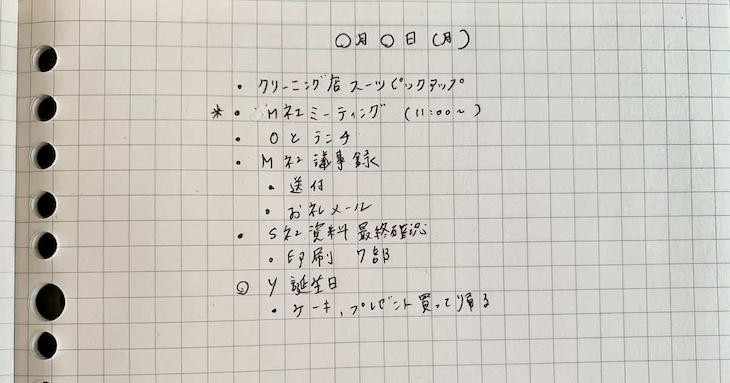 ○月○日(月)
・クリーニング店スーツピックアップ
*・M社ミーティング (11:00~)
・Oとランチ
・M社議事録
・送付
・お礼メール
・S社資料最終確認
・印刷 7部
◎ Y誕生日
・ケーキ、プレゼント買って帰る